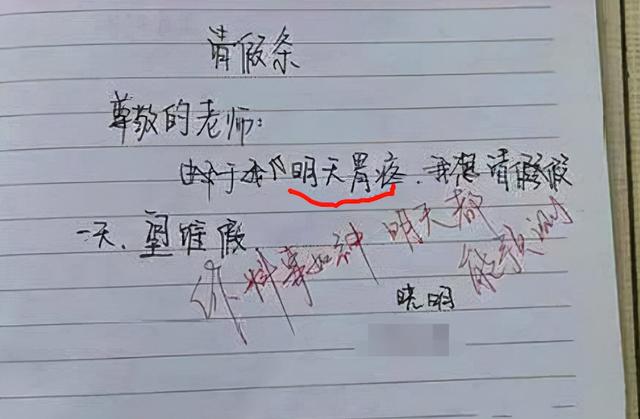 请假条
尊敬的老师：
由于我明天胃疼，我想请假
一天，望准假。
你料事如神 明天都
能预测
晓明